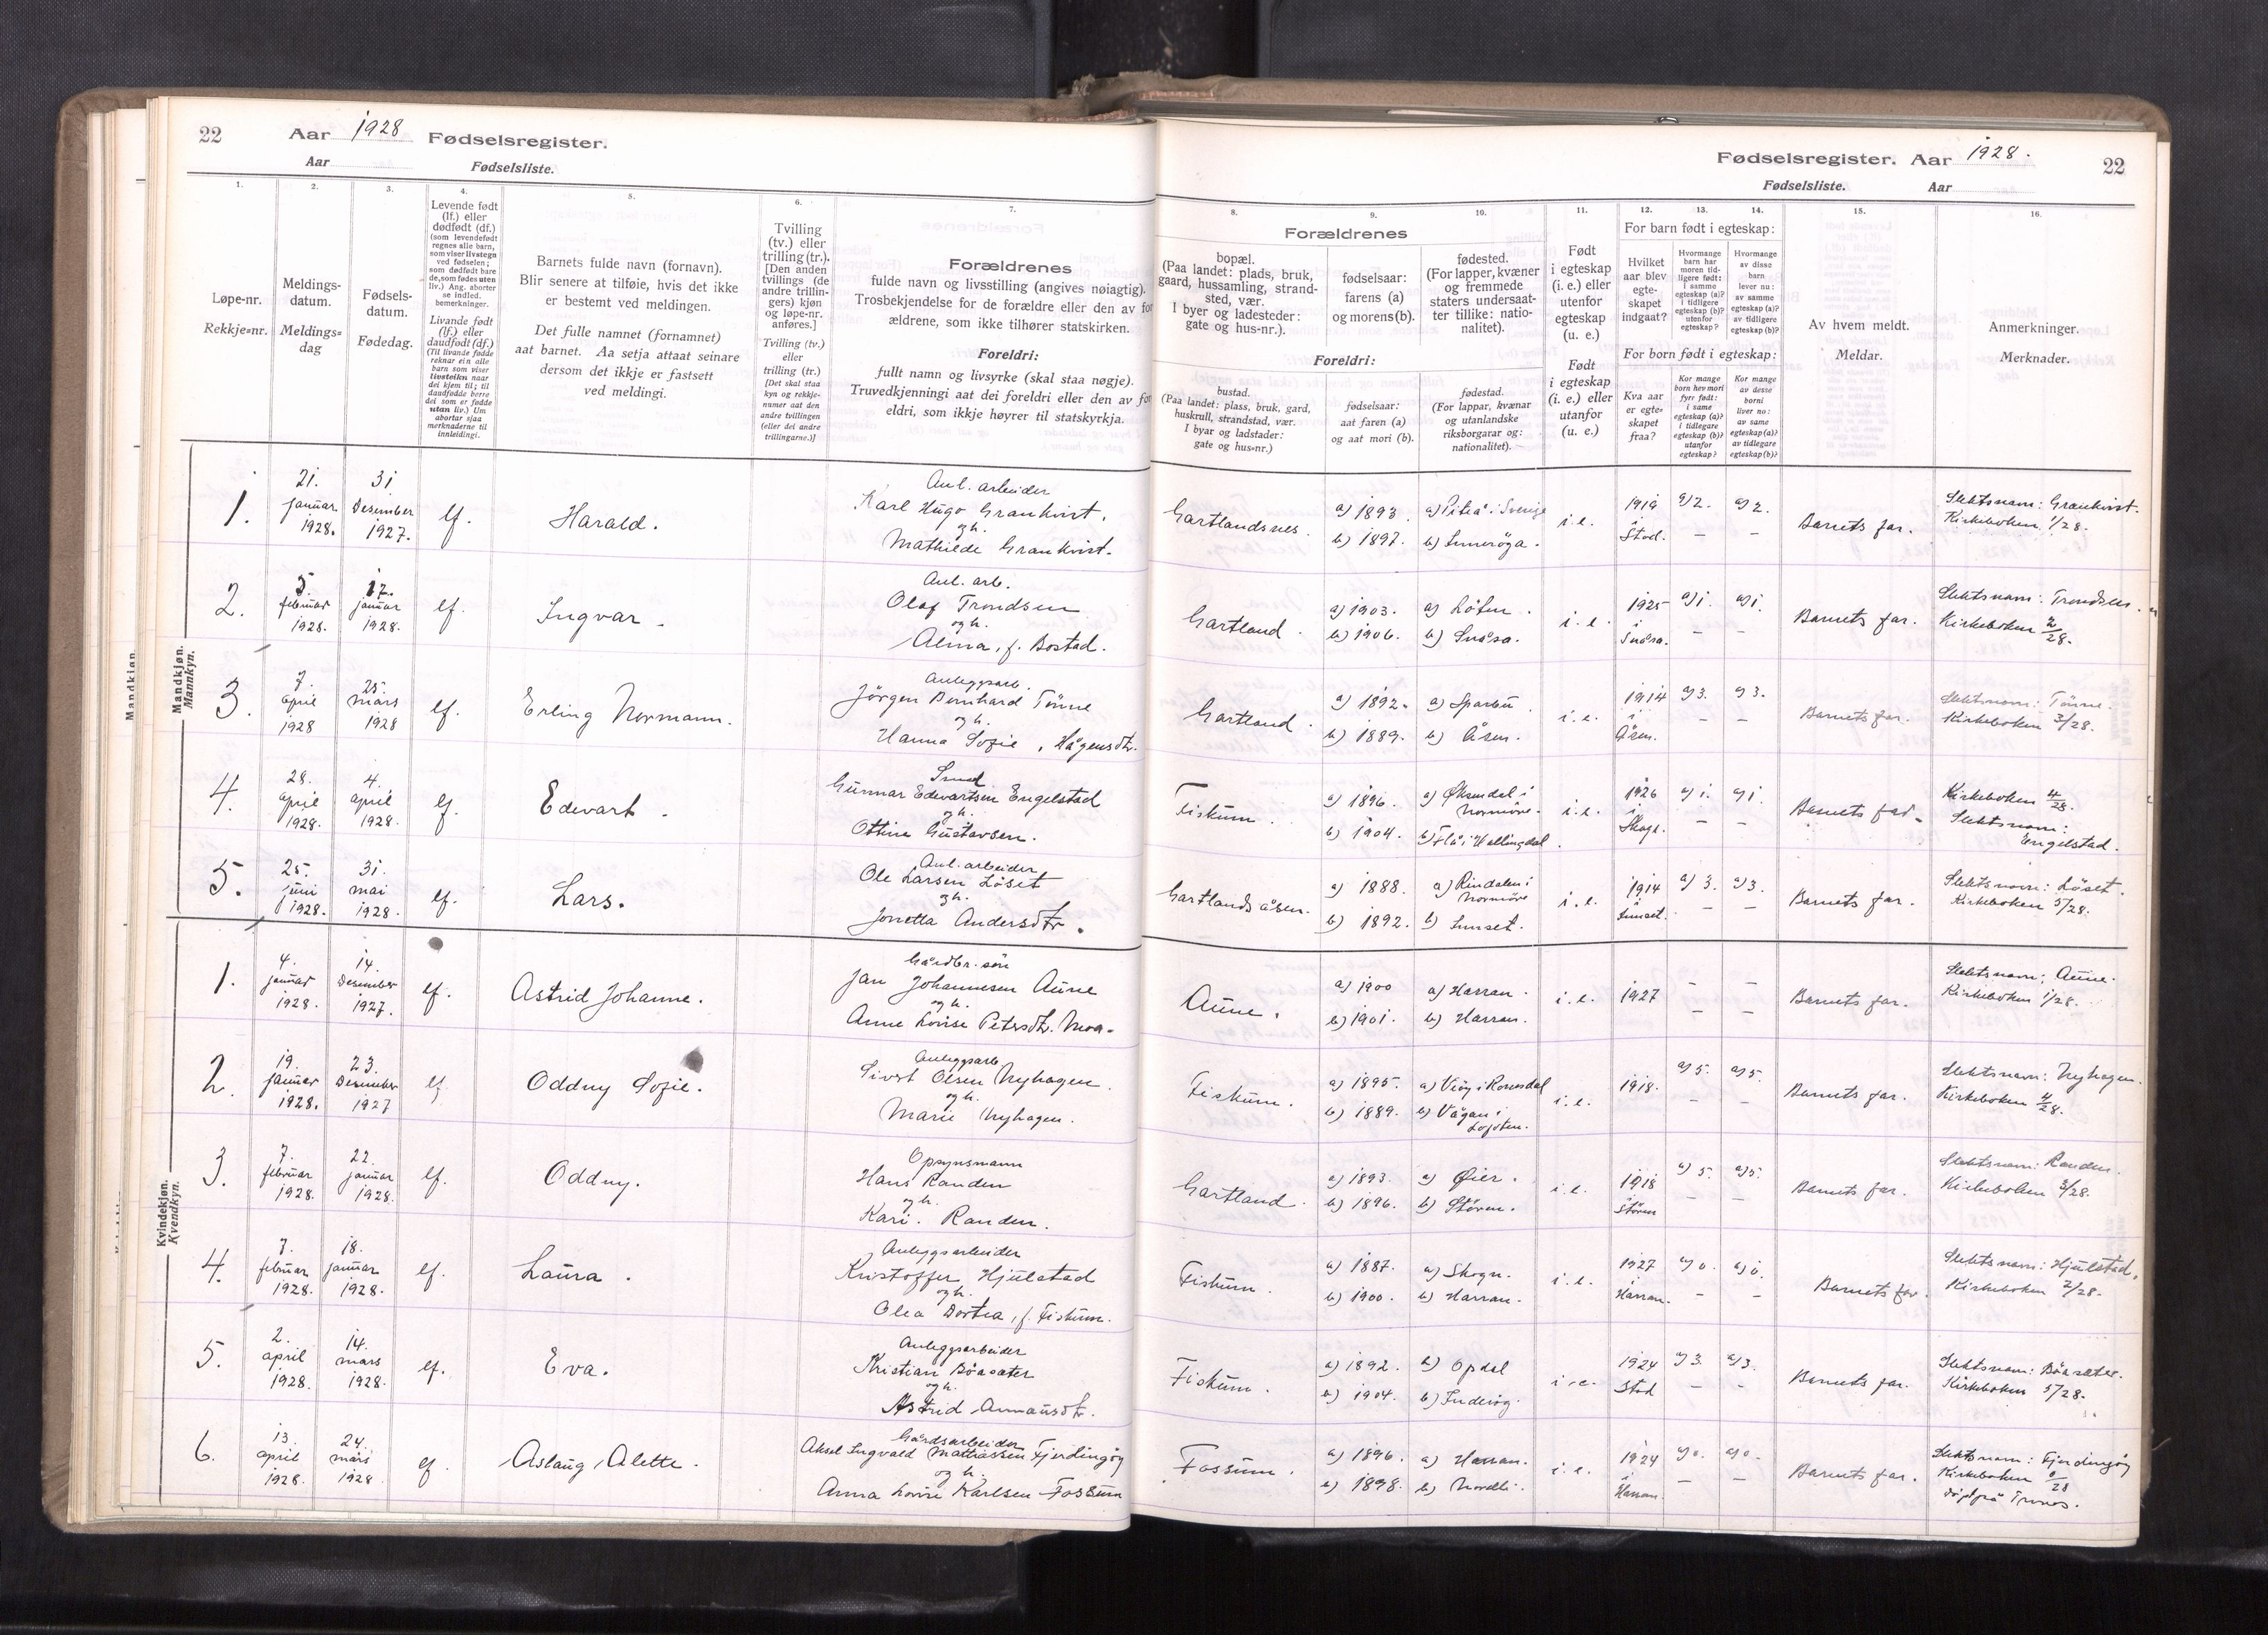 22 Aar 1928 Fødselsregister.
Aar Fødselsliste.
Fødselsregister. Aar 1928. 22
Fødselsliste. Aar
1.
Løpe-nr.
Rekkje=nr.
2.
Meldings-
datum.
Meldings=
dag
3.
Fødsels-
datum.
Fødedag.
4.
Levende født
(lf.) eller
dødfødt (df.)
(som levendefødt
regnes alle barn,
som viser livstegn
ved fødselen;
som dødfødt bare
de, som fødes uten
liv.) Ang. aborter
se indled.
bemerkninger.
Livande født
(lf.) eller
daudfødt (df.)
(Til livande fødde
reknar ein alle
barn som viser
livsteikn naar
dei kjem til; til
daudfødde berre
dei som er fødde
utan liv.) Um
abortar sjaa
merknaderne til
innleidingi.
5.
Barnets fulde navn (fornavn).
Blir senere at tilføie, hvis det ikke
er bestemt ved meldingen.
Det fulle namnet (fornamnet)
aat barnet. Aa setja attaat seinare
dersom det ikkje er fastsett
ved meldingi.
6.
Tvilling
(tv.) eller
trilling (tr.).
[Den anden
tvillings (de
andre trillin-
gers) kjøn
og løpe-nr.
anføres.]
Tvilling (tv.)
eller
trilling (tr.)
[Det skal staa
kyn og rekkje-
nummer aat den
andre tvillingen
(eller dei andre
trillingarne.)]
7.
Forældrenes
fulde navn og livsstilling (angives nøiagtig).
Trosbekjendelse for de forældre eller den av for
ældrene, som ikke tilhører statskirken.
Foreldri:
fullt namn og livsyrke (skal staa nøgje).
Truvedkjenningi aat dei foreldri eller den av for
eldri, som ikkje høyrer til statskyrkja.
Forældrenes
8.
bopæl.
(Paa landet: plads, bruk,
gaard, hussamling, strand-
sted, vær.
I byer og ladesteder:
gate og hus-nr.).
9.
fødselsaar:
farens (a)
og morens (b).
10.
fødested.
(For lapper, kvæner
og fremmede
staters undersaat-
ter tillike: natio-
nalitet).
Foreldri:
bustad.
(Paa landet: plass, bruk, gard,
huskrull, strandstad, vær.
I byar og ladstader:
gate og hus=nr.)
fødselsaar:
aat faren (a)
og aat mori (b).
fødestad.
(For lappar, kvænar
og utanlandske
riksborgarar og:
nationalitet).
11.
Født
i egteskap
(i. e.) eller
utenfor
egteskap
(u. e.)
Født
i egteskap
(i. e.) eller
utanfor
(u. e.)
12. 13. 14.
For barn født i egteskap:
Hvilket
aar blev
egte-
skapet
indgaat?
Hvormange
barn har
moren tid-
ligere født:
i samme
egteskap (a)?
i tidligere
egteskap (b)?
utenfor
egteskap?
Hvormange
av disse
barn
lever nu:
av samme
egteskap (a)?
av tidligere
egteskap (b)?
For born født i egteskap:
Kva aar
er egte-
skapet
fraa?
Kor mange
born hev mori
fyrr født:
i same
egteskap (a)?
i tidlegare
egteskap (b)?
utanfor
egteskap?
Kor mange
av desse
borni
liver no:
av same
egteskap (a)?
av tidlegare
egteskap (b)?
15.
Av hvem meldt.
Meldar.
16.
Anmerkninger.
Merknader.
Mandkjøn.
Mannkyn.
1. 21. januar 1928. 31 Desember 1927. lf. Harald.
Anl. arbeider
Karl Hugo Grankvist.
og h.
Mathilde Grankvist.
Gartlandsnes. a) 1893. b) 1897. a) Piteå i Sverige
i. e. Stod. a) 2. a) 2. Barnets far.
Slektsnavn: Grankvist.
Kirkeboken 1/28.
2. 5. februar 1928. 17. januar 1928. lf. Ingvar.
Anl. arb.
Olaf Trondsen
og h.
Alma, f. Bostad.
Gartland. a) 1903. b) 1906. a) Løten. b) Snåsa.
i. e. 1925 i Snåsa. a) 1. a) 1. Barnets far.
Slektsnavn: Trondsen.
Kirkeboken 2/28.
3. 7. april 1928 25. mars 1928 lf. Erling Normann.
Anleggsarb.
Jörgen Bernhard Tönne
og h.
Hanna Sofie, Hågensdtr.
Gartland. a) 1892. b) 1889. a) Sparbu. b) Åsen.
i. e. 1914 i Åsen. a) 3. a) 3. Barnets far.
Slektsnavn: Tönne.
Kirkeboken 3/28.
4. 28. april 1928. 4. april 1928. lf. Edevart.
Smed
Gunnar Edevartsen Engelstad
og h.
Ottine Gustavsen.
Fiskum. a) 1896. b) 1904. a) Øksendal i Nordmöre. b) Flå i Hallingdal.
i. e. 1926 i Skage. a) 1. a) 1. Barnets far.
Kirkeboken 4/28.
Slektsnavn:
Engelstad.
5. 25. juni 1928. 31. mai 1928. lf. Lars.
Anl. arbeider
Ole Larsen Löset
og h.
Jonetta Andersdtr.
Gartlandsåsen. a) 1888. b) 1892. a) Rindalen i Nordmöre b) Sunset.
i. e. 1914 i Sunset. a) 3. a) 3. Barnets far.
Slektsnavn: Löset.
Kirkeboken 5/28.
Kvindekjøn.
Kvendkyn.
1. 4. januar 1928. 14. Desember 1927. lf. Astrid Johanne.
Gårdbr. sön
Jan Johannesen Aune
og h.
Anne Lovise Petersdtr. Moa.
Aune. a) 1900 b) 1901. a) Harran. b) Harran.
i. e. 1927 Barnets far.
Slektsnavn: Aune.
Kirkeboken 1/28.
2. 19. januar 1928. 23. Desember 1927 lf. Oddny Sofie.
Anleggsarb.
Sivert Olsen Nyhagen.
og h.
Marie Nyhagen.
Fiskum. a) 1895. b) 1889. b) Vågan i Lofoten.
i. e. 1918. a) 5. a) 5. Barnets far.
Slektsnavn: Nyhagen.
Kirkeboken 4/28.
3. 7. februar 1928. 22. januar 1928. lf. Oddny.
Opsynsmann
Hans Randen
og h.
Kari Randen.
Gartland. a) 1893. b) 1896. a) Øier. b) Stören.
i. e. 1918 i Stören a) 5. a) 5. Barnets far.
Slektsnavn: Randen.
Kirkeboken 3/28.
4. 7. februar 1928. 18. januar 1928. lf. Laura.
Anleggsarbeider
Kristoffer Hjulstad
og h.
Olea Dortea, f. Fiskum.
Fiskum. a) 1887. b) 1900. a) Skogn. b) Harran.
i. e. 1927 Harran. a) 0. a) 0. Barnets far.
Slektsnavn: Hjulstad.
Kirkeboken 2/28.
5. 2. april 1928. 14. mars 1928. lf. Eva.
Anleggsarbeider
Kristian Böasæter
og h.
Astrid Amansdtr.
Fiskum. a) 1892. b) 1904. a) Opdal b) Inderöy.
i. e. 1924 Stod a) 3. a) 3. Barnets far.
Slektsnavn: Böasæter.
Kirkeboken 5/28.
6. 13. april 1928. 24. mars 1928 lf. Aslaug Alette.
Gårdsarbeider
Aksel Ingvald Mattiassen Fjerdingöy
og h.
Anna Lovise Karlsen Fossum
Fossum. a) 1896. b) 1898. a) Harran. b) Nordli.
i. e. 1924 i Harran. a) 0. a) 0. Barnets far.
Slektsnavn: Fjerdingöy
Kirkeboken